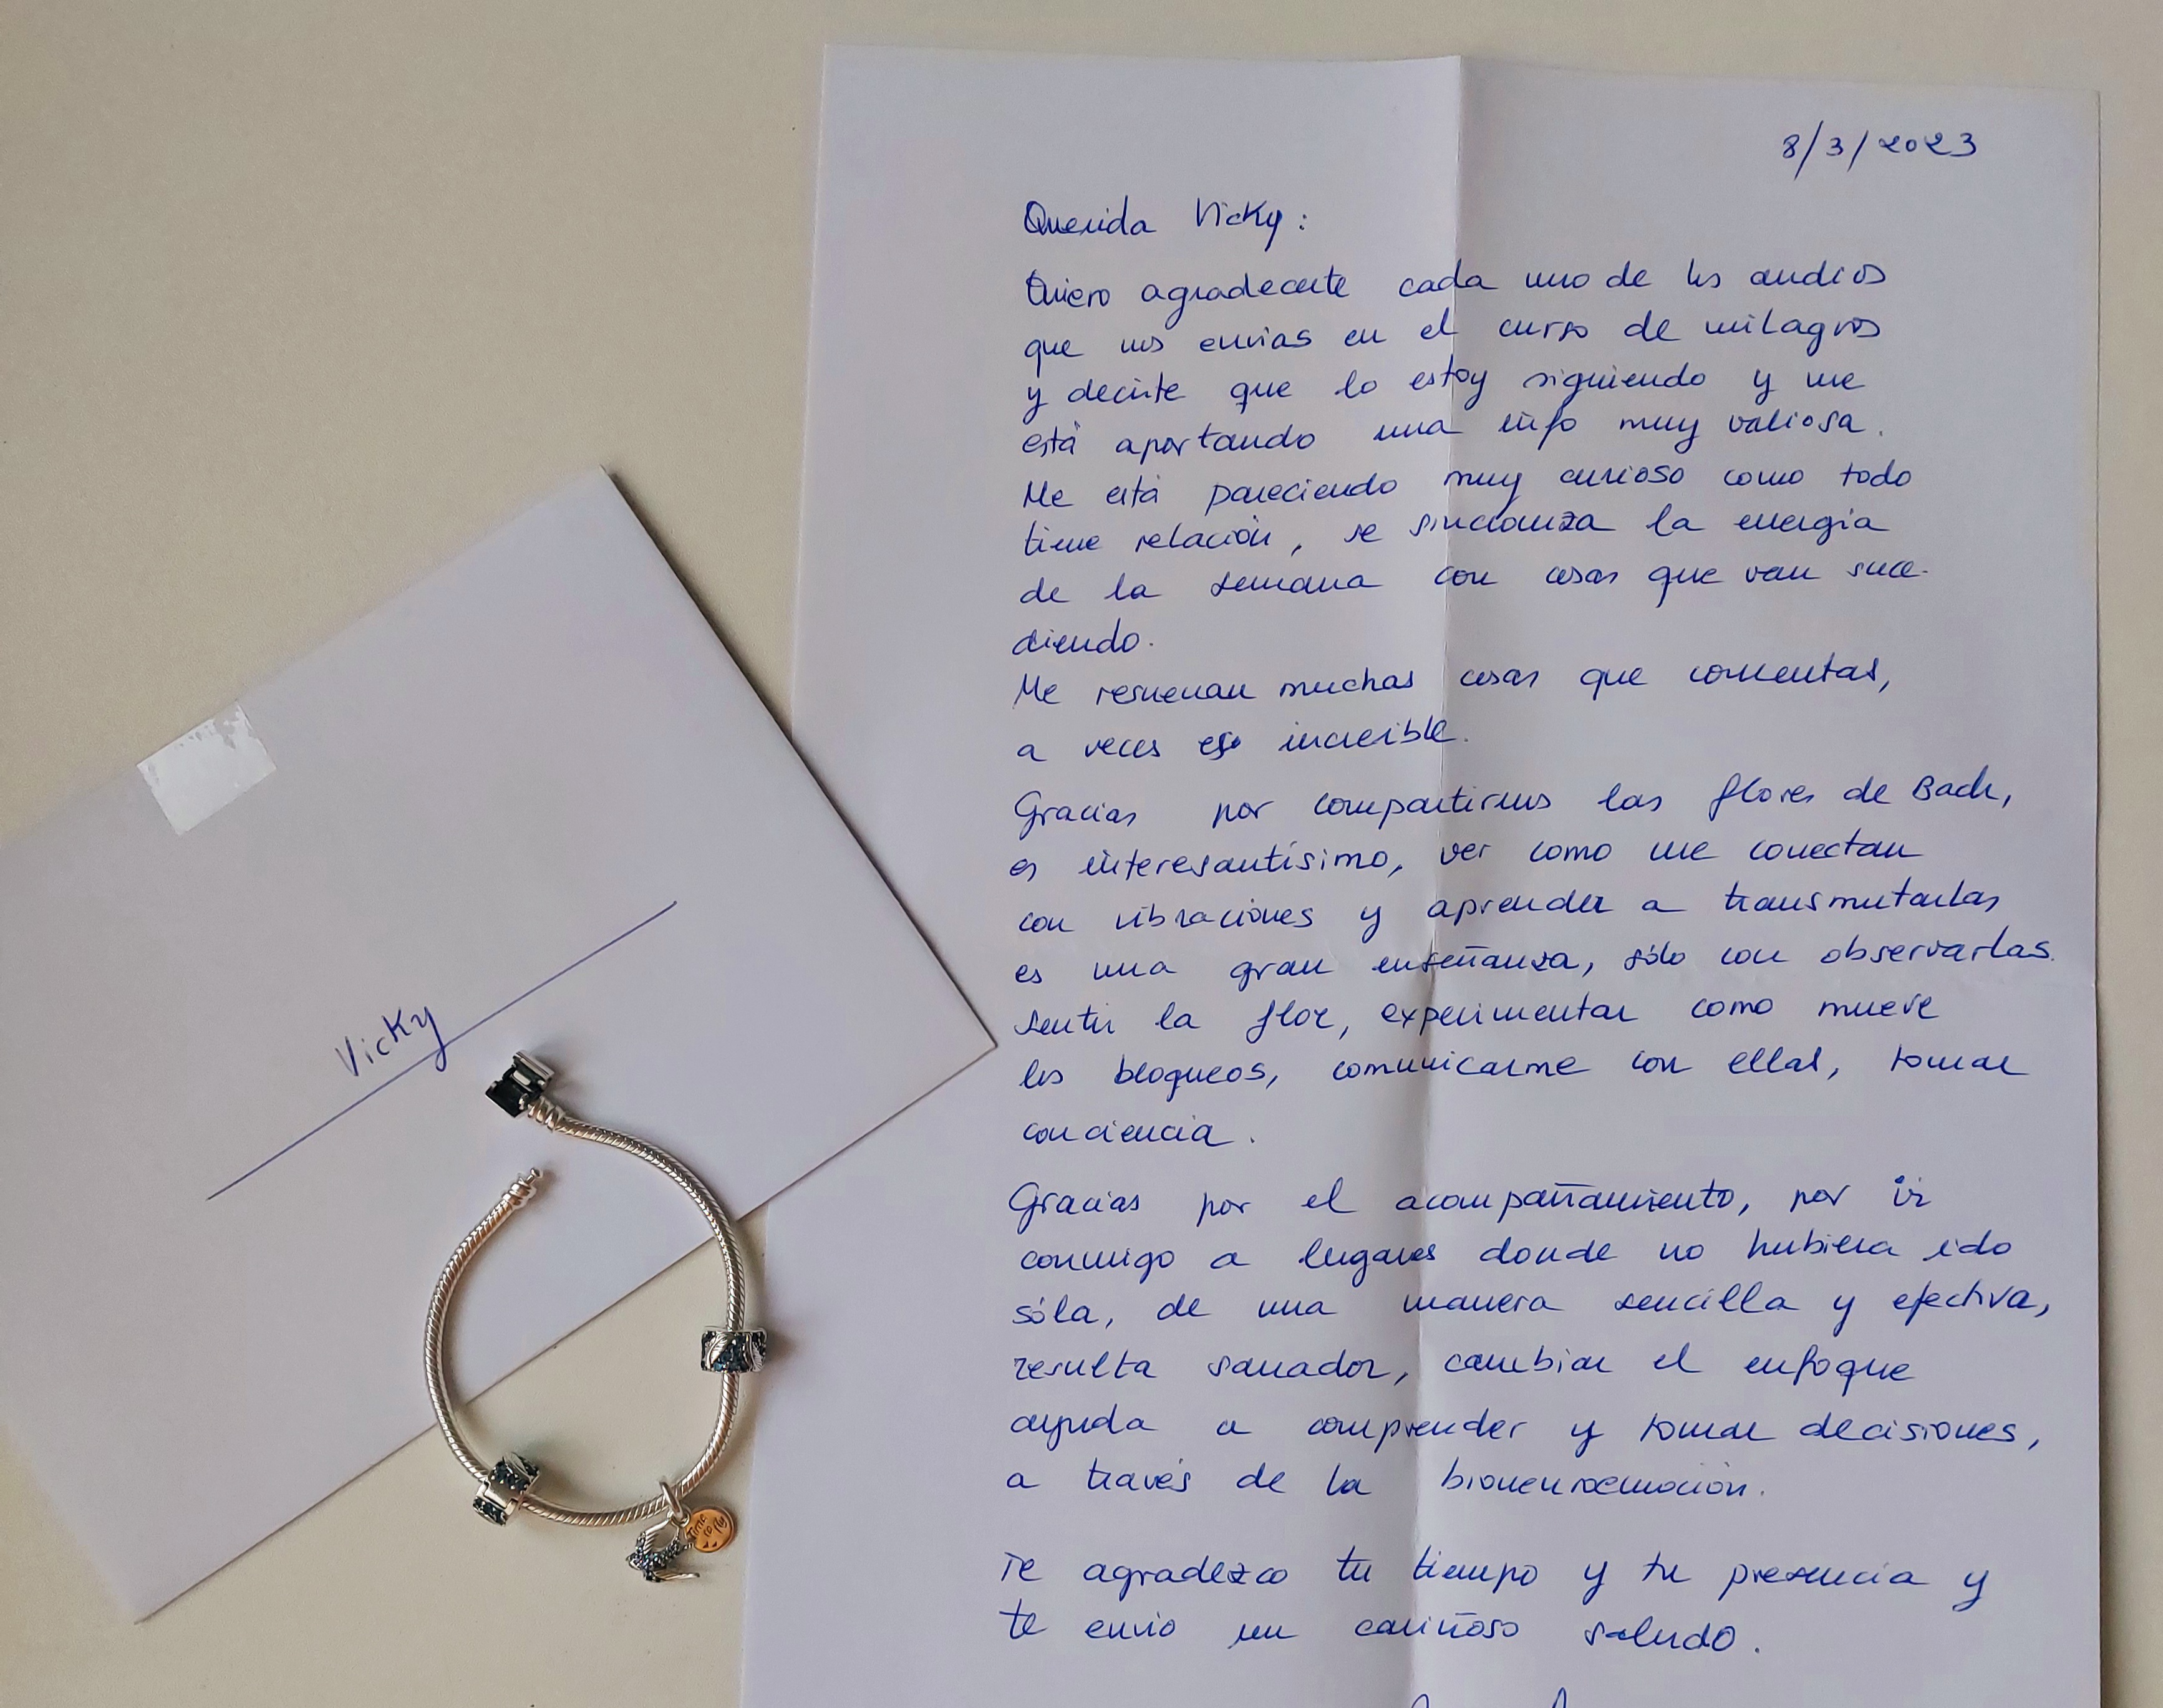 8/3/2023
Querida Vicky:
Quiero agradecerte cada uno de los audios
que nos envias en el curso de milagros
y decirte que lo estoy siguiendo y me
está aportando una info muy valiosa.
Me está pareciendo muy curioso como todo
tiene relación, se sincroniza la energia
de la semana con cosas que van suce-
diendo.
Me resuenan muchas cosas que comentas,
a veces es increible.
Gracias por compartirnos las flores de Bach,
es interesantísimo, ver como me conectan
con vibraciones y aprender a transmutarlas
es una gran enseñanza, sólo con observarlas.
sentir la flor, experimentar como mueve
los bloqueos, comunicarme con ellas, tomar
conciencia.
Gracias por el acompañamiento, por ir
conmigo a lugares donde no hubiera ido
sóla, de una manera sencilla y efectiva,
resulta sanador, cambiar el enfoque
ayuda a comprender y tomar decisiones,
a través de la bioneuroemoción.
Te agradezco tu tiempo y tu presencia y
te envio un cariñoso saludo.
Vicky
Time
to fly